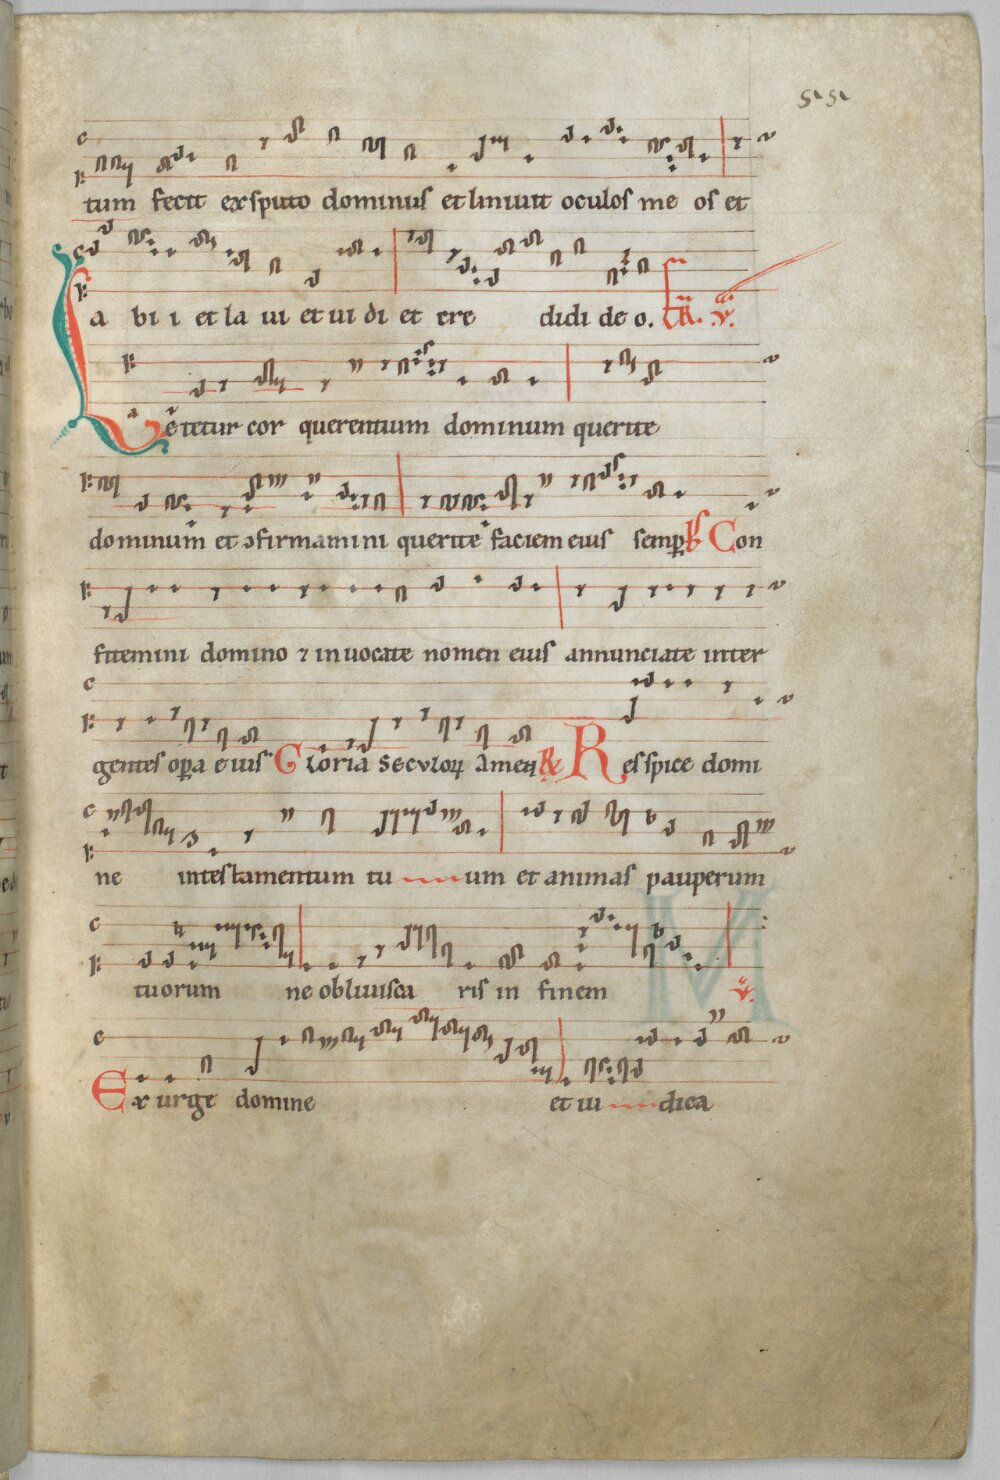 55
tum fecit ex sputo dominus et liniuit oculos me os et
a bi i et la ui et ui di et cre didi de o.
Letetur cor querentium dominum querite
dominum et ɔfirmamini querite faciem eius semp Con
fitemini domino ⁊ inuocate nomen eius annunciate inter
gentes opa e ius Gloria seculoꝝ amen R es spice domi
ne in testamentum tu um et animas pauperum
tuorum ne obliuisca ris in finem
Ex urge domine et iu dica